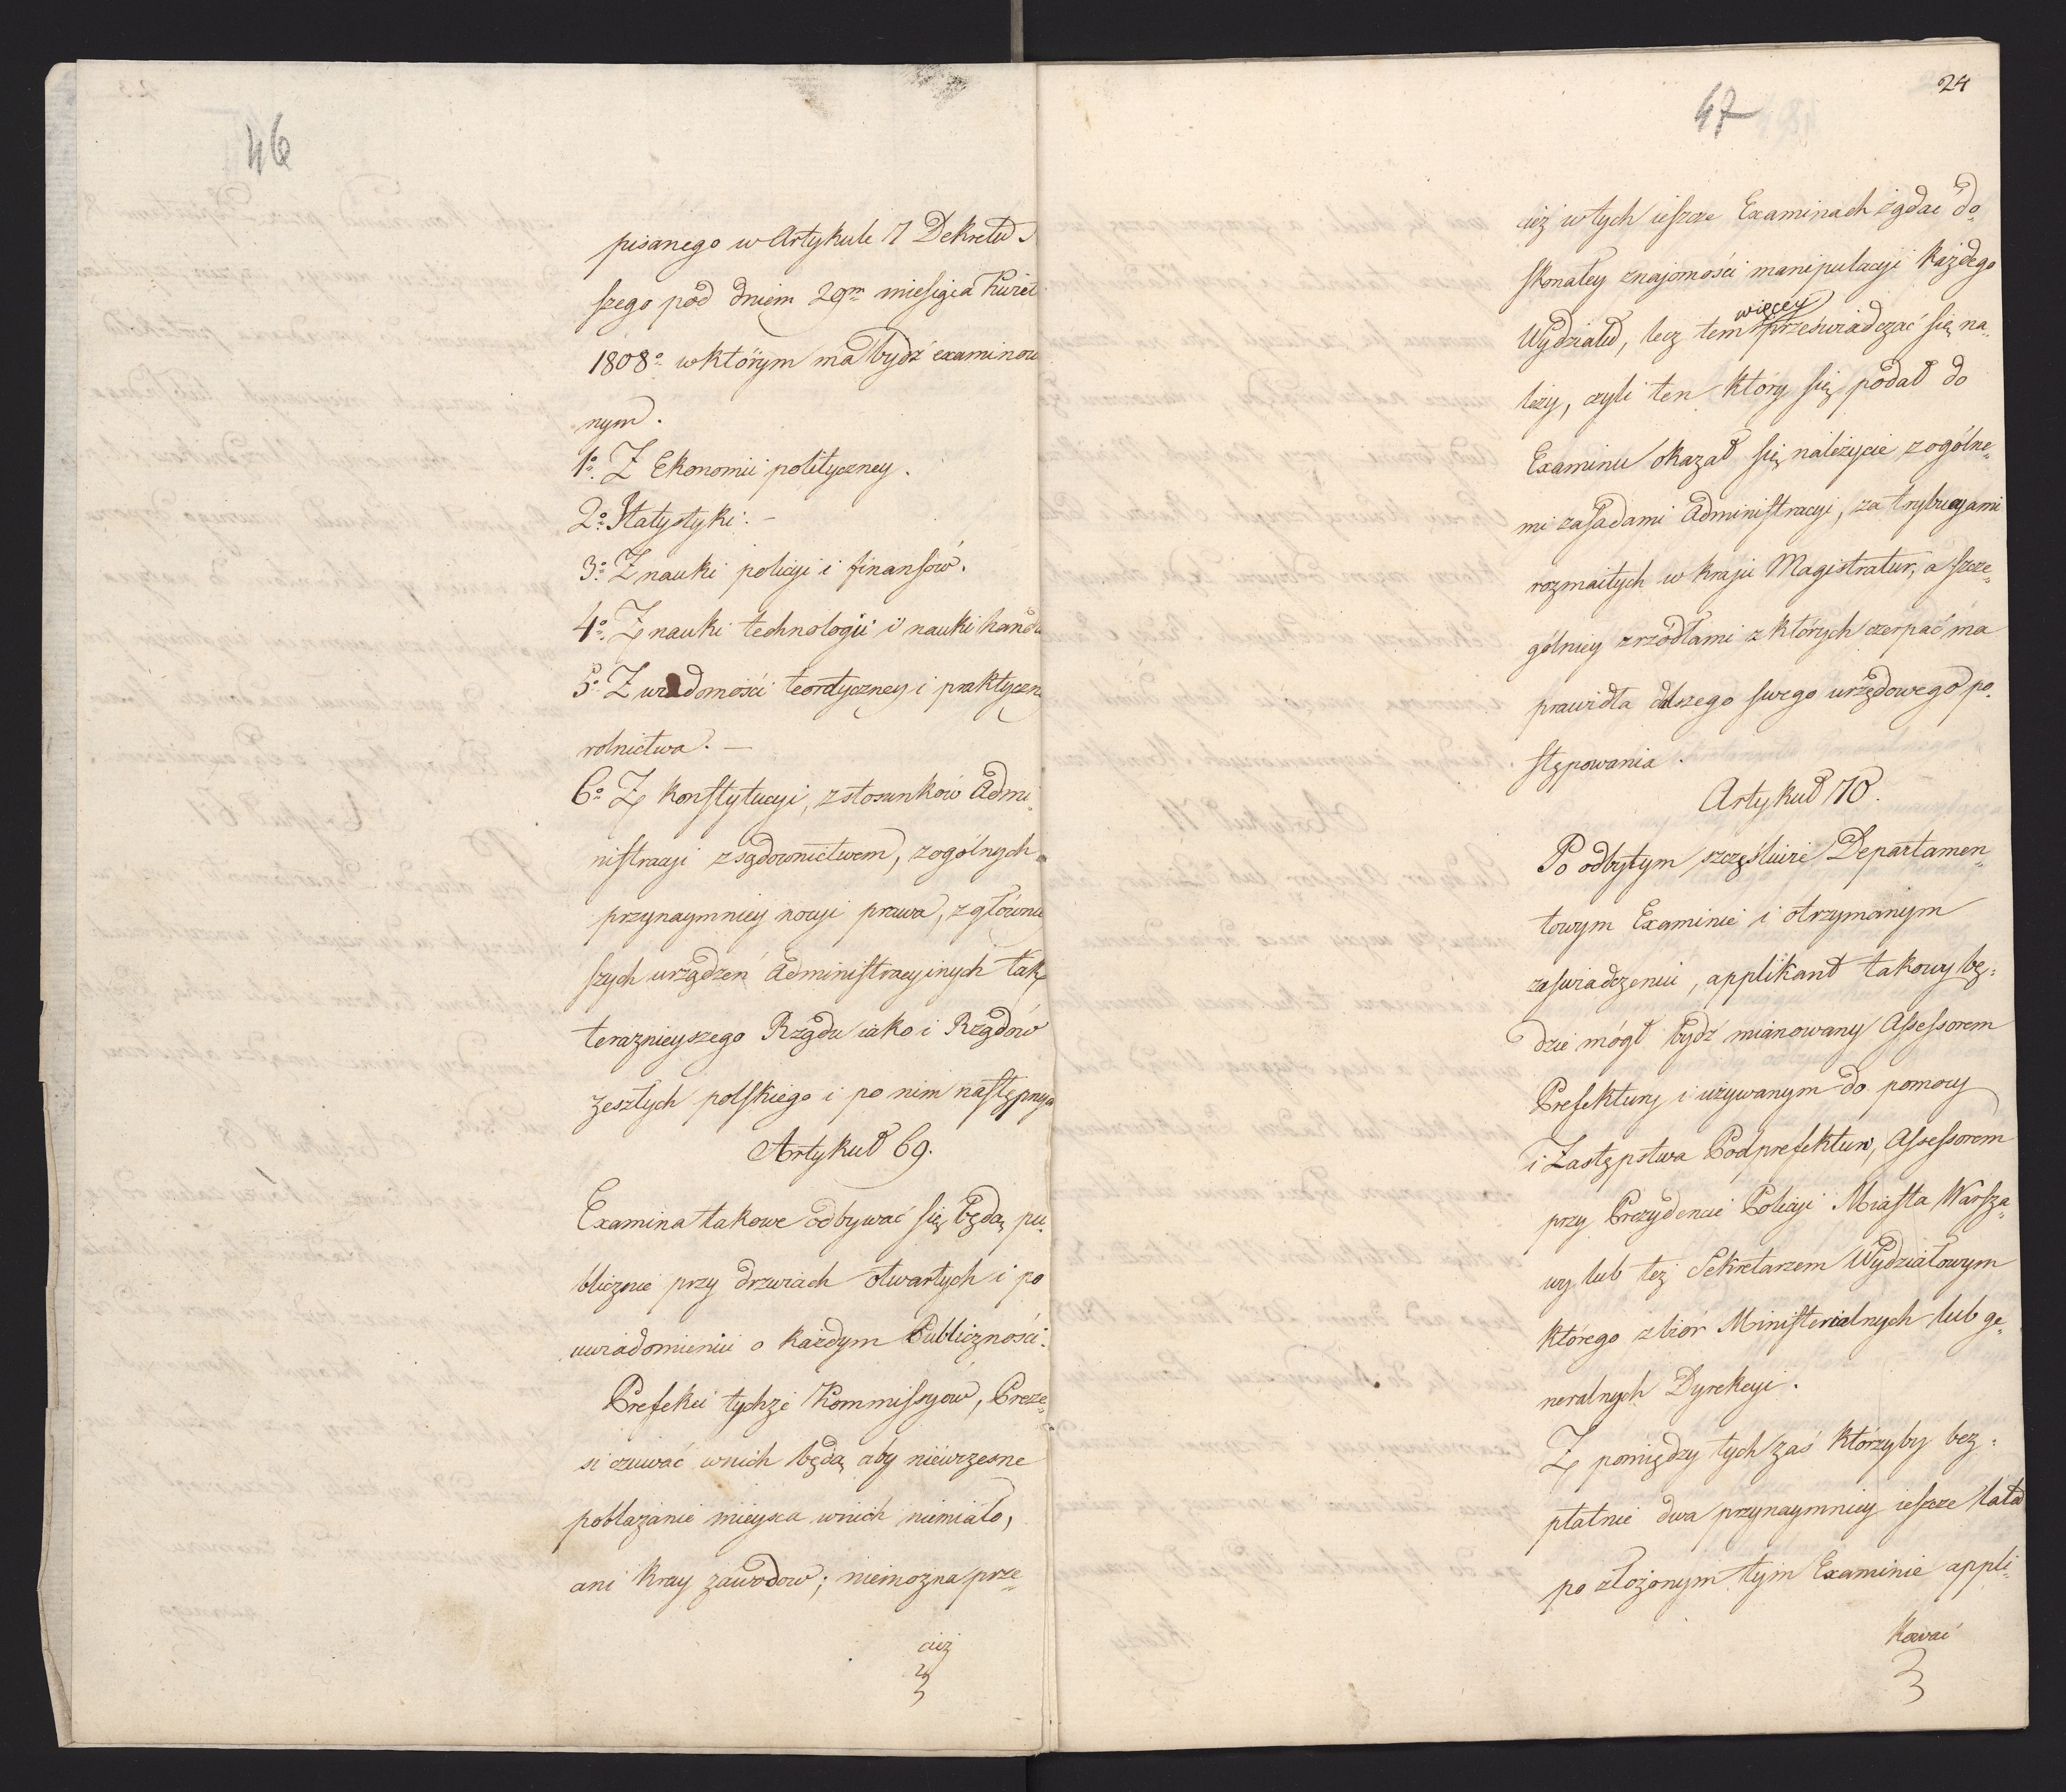 46
pisanego w Artykule 7 Dekretu
szego pod dniem 29m miesiąca Kwiet
1808o w którym ma bydź examinow
nym.
1o Z Ekonomii polityczney.
2o Statystyki. –
3o Z nauki policyi i finansów.
4o Z nauki technologii i nauki hand
5o Z wiadomości teoretyczney i praktyczn
rolnictwa. —
6o Z Konstytucyi, z stosunków Admi„
nistracyi z sądownictwem, z ogólnych
przynaymniey nocyi prawa, z główni
szych urządzeń Administracyinych tak
terazniejszego Rządu iako i Rządów
zeszłych polskiego i po nim następny
Artykuł 69.
Examina takowe odbywać się będą pu„
blicznie przy drzwiach otwartych i po
uwiadomieniu o każdym Publiczności.
Prefekci tychże Kommissyów, Preze„
si czuwać w nich będą aby niewczesne
pobłażanie mieysca w nich niemiało,
ani Kray zawodow; niemożna prze„
cież
24
47
cież w tych ieszcze Examinach żądać do„
skonałey znajomości manipulacyi każdego
Wydziału, lecz tem więcey przeświadczać się na„
leży, czyli ten który się podał do
Examinu okazał się należycie z ogólne„
mi zasadami Administracyi, z atrybucyami
rozmaitych w kraju Magistratur, a szcze„
gólniey zrzódłami z których czerpać ma
prawidła dalszego swego urzędowego po„
stępowania.
Artykuł 70.
Po odbytym szczęśliwie Departamen„
towym Examinie i otrzymanym
zaświadczeniu, applikant takowy bę„
dzie mógł bydź mianowany Assessorem
Prefektury i używanym do pomocy
i Zastępstwa Podprefektur, Assessorem
przy Prezydencie Policyi Miasta Warsza„
wy lub też Sekretarzem Wydziałowym
którego z biór Ministerialnych lub ge„
neralnych Dyrekcyi.
Z pomiędzy tych zaś którzyby bez„
płatnie dwa przynaymniey ieszcze lata
po złożonym tym Examinie appli„
kować